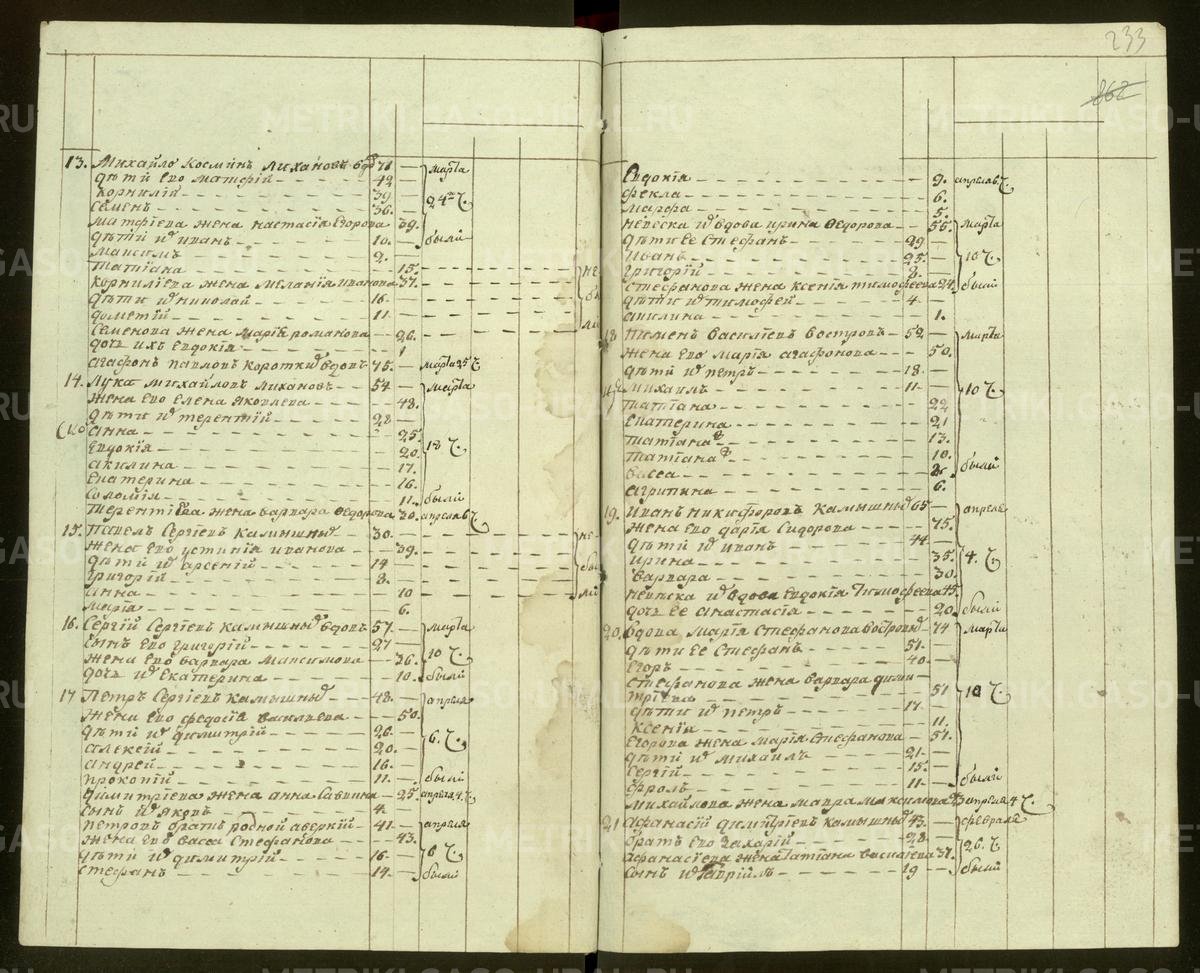 233
262
13. Михайло Косминъ Лихановъ вдовъ 71 — марта
дѣти его Матфій — 42
Корнилій — 39 — 24 ч.
Семенъ — 36.
Матфіева жена Настасія Егорова 39.
дѣти их Иванъ — 10. — были
Максимъ — 2.
Татіана — 15. — не
Корниліева жена Меланія Иванова 37. — бы
дѣти их Николай — 16.
Дометій — 11 — ли
Семенова жена Маріѣ Романова — 26.
дочь ихъ Евдокія — 1
Агафонъ Павловъ Коротких вдовъ 75. — марта 25 ч
14. Лука Михайловъ Лихановъ — 54 — марта
жена его Елена Яковлева — 48.
дѣти их Терентій — 28
Анна — 25.
Евдокія — 20. 18 ч.
Акилина — 17.
Екатерина — 16.
Соломія — 11. были
Терентіева жена Варвара Федорова 20. апреля 6 ч.
15. Павелъ Сергіевъ Камышных — 30. — не
жена его Устинія Иванова — 39.
дѣти их Арсеній — 14 — бы
Григорій — 8.
Анна — 10 — ли
Марія — 6.
16. Сергій Сергіевъ Камышных вдовъ 57. — марта
сынъ его Григорій — 27
жена его Варвара Максимова — 26. 10 ч.
дочь их Екатерина — 10. были
17 Петръ Сергіевъ Камышных — 48. — апреля
жена его Федосіа Васильева — 50.
дѣти их Димитрій — 26. 6. ч.
Алексій — 20.
Андрей — 16.
Прокопій — 11. были
Димитріева жена Анна Саввина — 25. апреля 4. ч
сынъ их Яковъ — 4.
Петровъ братъ родной Аверкій — 41. — апреля
жена его Васса Стефанова — 43.
дѣти их Димитрій — 16. 6 ч.
Стефанъ — 14. — были
Евдокія — 9. апреля 6 ч.
Фекла — 6.
Марфа — 5.
невеска их вдова Ирина Федорова — 55. марта
дѣти ее Стефанъ — 29
Иванъ — 25. 10 ч.
Григорій — 8.
Стефанова жена Ксенія Тимофеева 24. были
дѣти их Тимофей — 4.
Акилина — 1.
18 Пимен Василіевъ Востровъ — 52 — марта
жена его Маріа Агафонова — 50.
дѣти их Петръ — 18.
Михаилъ — 11. 10 ч.
Татіана — 22
Екатерина — 21
Татіана — 13.
Татіана — 10.
Васса — были
Агрипина — 6.
19. Иванъ Никифоровъ Камышных 65 — апреля
жена его Дарія Сидорова — 75.
дѣти их Иванъ — 44 —
Ирина — 35. 4. ч.
Варвара — 30.
невѣска их вдова Евдокія Тимофеева 45.
дочь ее Анастасіа — 20. были
20. Вдова Маріа Стефанова Вострых — 74 марта
дѣти ее Стефанъ — 51.
Егоръ — 40.
Стефанова жена Варвара Дими
тріева — 51 10 ч.
дѣти их Петръ — 17.
Ксенія — 11.
Егорова жена Маріа Стефанова — 51.
дѣти их Михаилъ — 21.
Сергій — 15.
Фролъ — 11 — были
Михайлова жена Мавра Максимова 23 апреля 4 ч.
21 Афанасій Димитріевъ Камышных 43. — февраля
братъ его Захарій — 28.
Афанасіева жена Татіана Василіева 37. 26. ч
сынъ их Гавріилъ — 19 — были